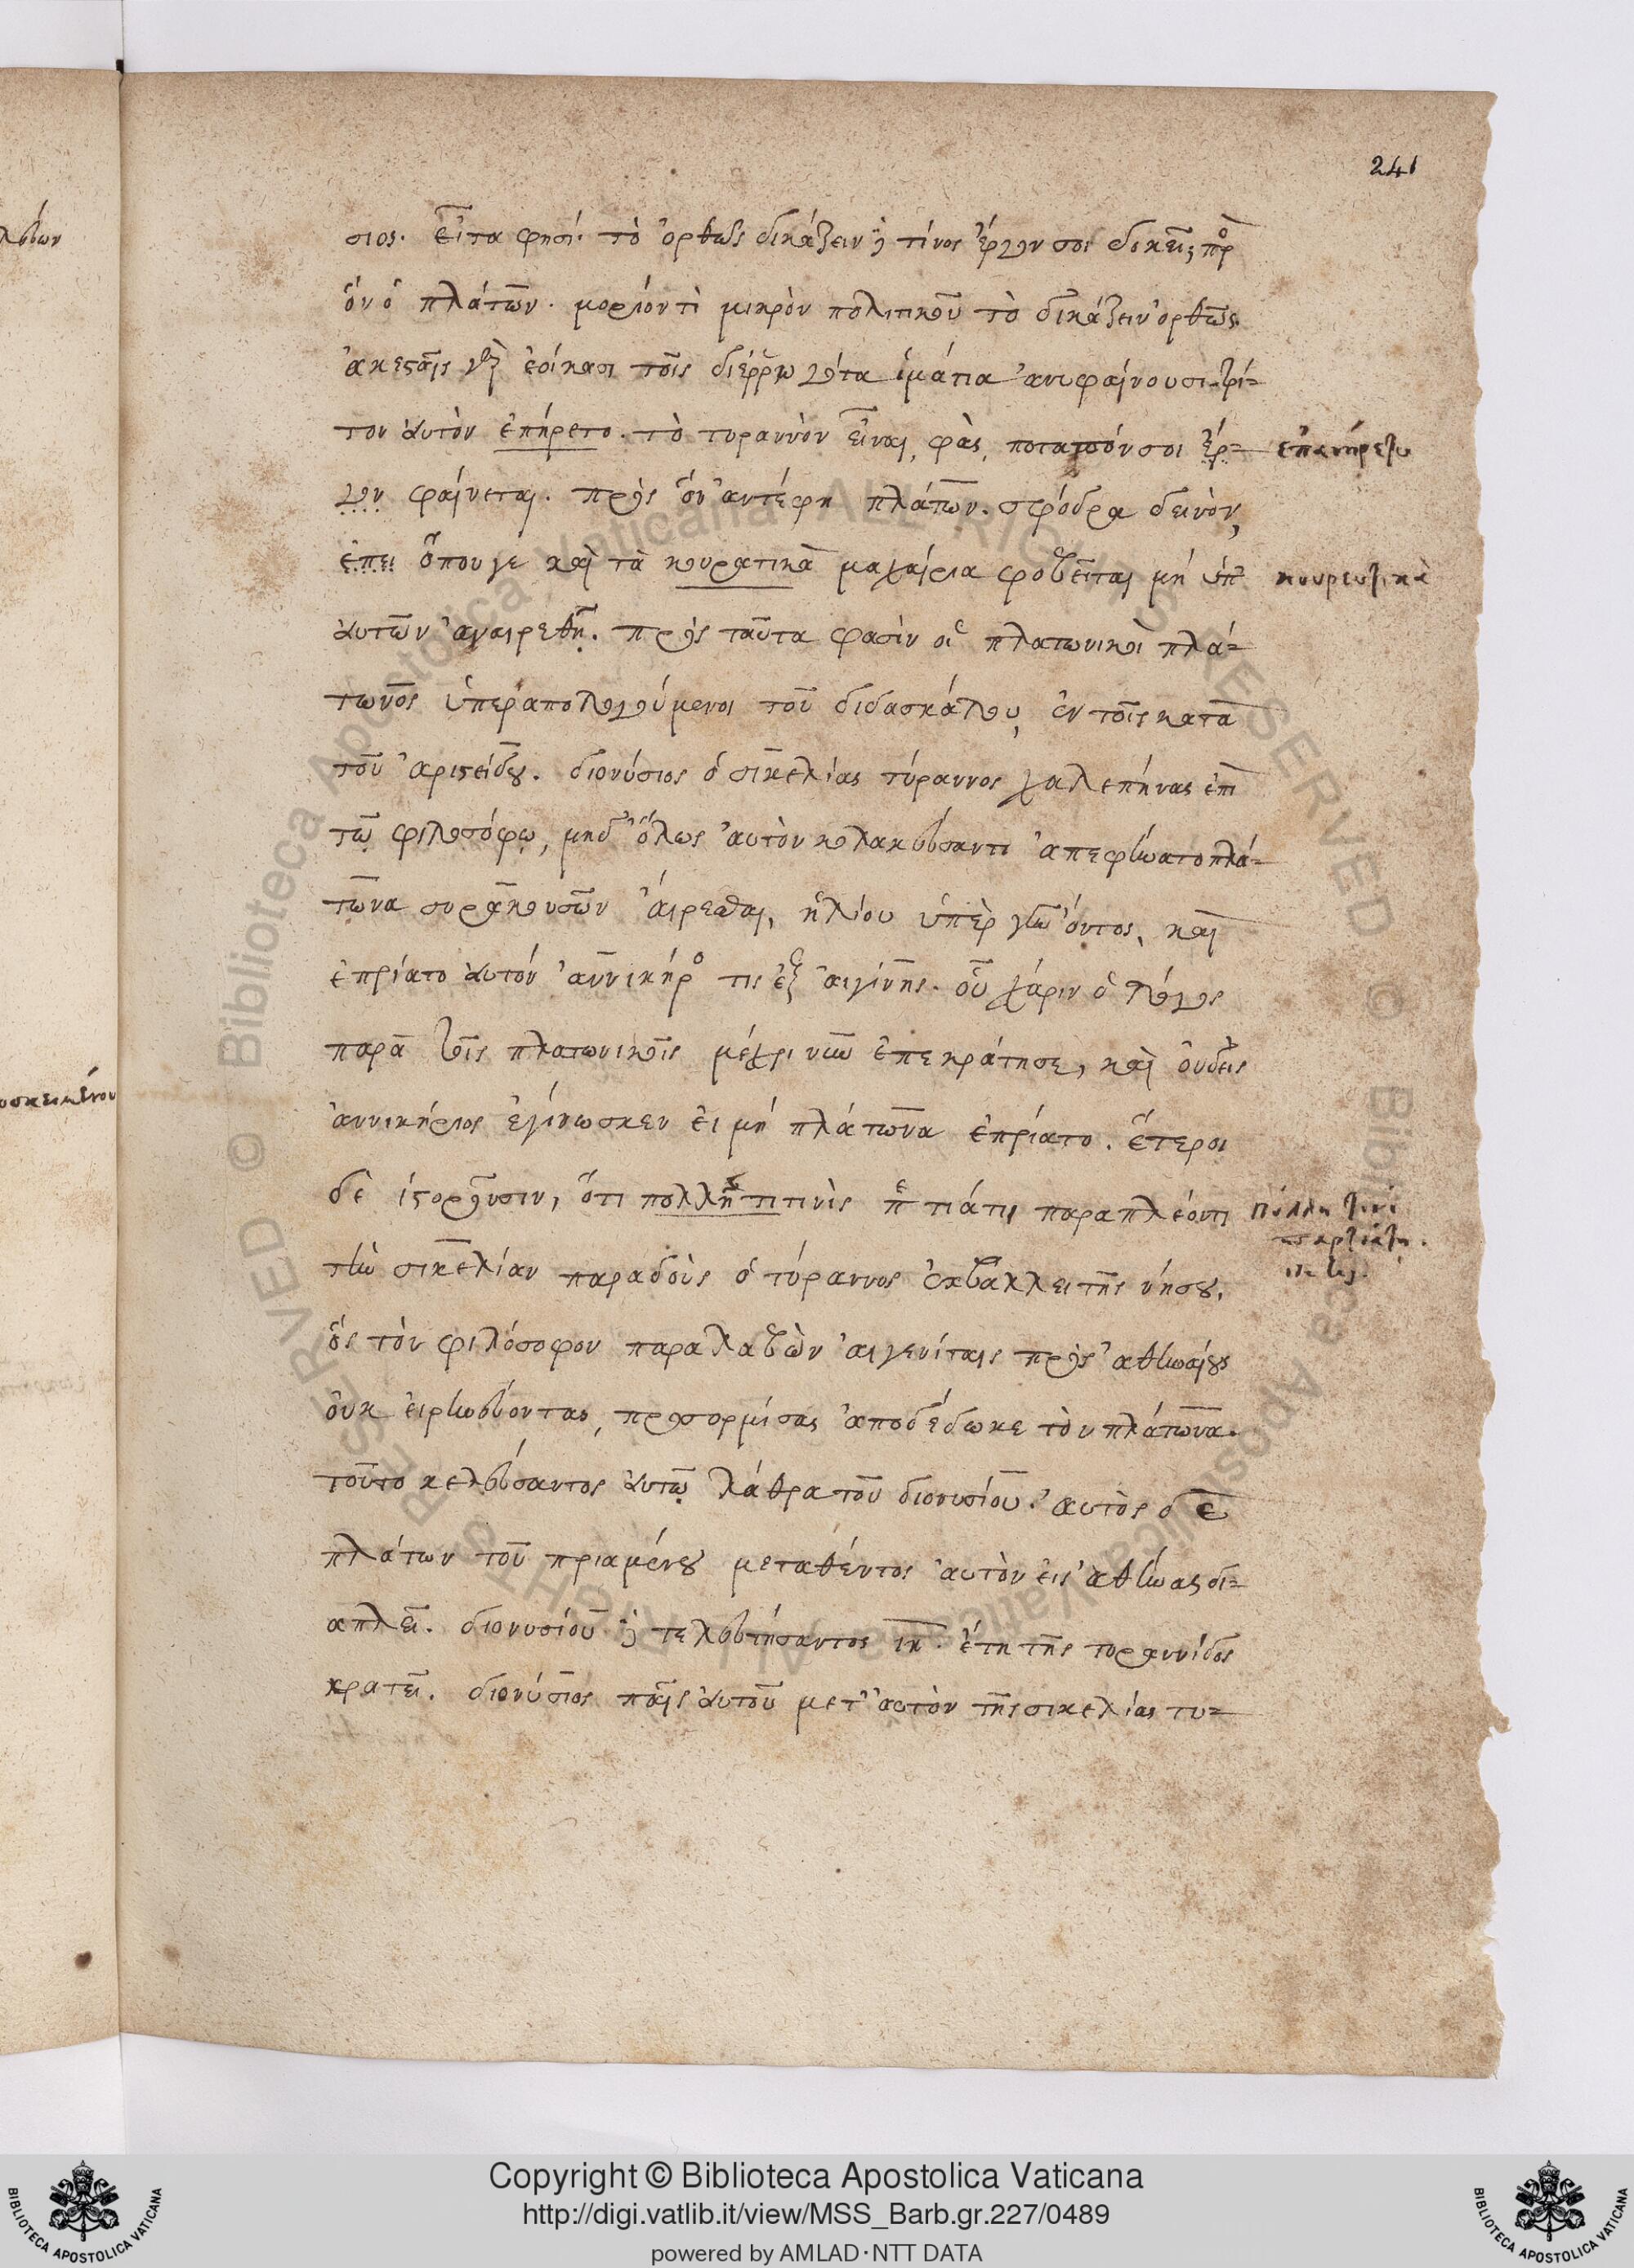 241
σιος. εἶτα φησί. τὸ ὀρθῶς δικάζειν δὲ τίνος ἔργον σοι δοκεῖ; πρὸς
ὃν ὁ πλάτων. μορίον τὶ μικρὸν πολιτικοῦ τὸ δικάζειν ὀρθῶς.
ἀκεσταῖς γὰρ ἐοίκασι τοῖς διερρωγότα ἱμάτια ἀνυφαίνουσι. τρί-
τον αὐτὸν ἐπήρετο. τὸ τυραννὸν εἶναι, φὰς, ποταπόν σοι ἔρ-
ἐπανήρετο
γον φαίνεται. πρὸς ὃν ἀντέφη πλάτων. σφόδρα δεινὸν,
ἐπεὶ ὅπου γε καὶ τὰ κουρατικὰ μαχαίρια φοβεῖται μὴ ὑπ'
κουρευτικὰ
αὐτῶν ἀναιρεθῇ. πρὸς ταῦτα φασὶν οἱ πλατωνικοὶ πλά-
τωνος ὑπεραπολογούμενοι τοῦ διδασκάλου, ἐν τοῖς κατὰ
τοῦ ἀριστείδου. διονύσιος ὁ σικελίας τύραννος χαλεπήνας ἐπὶ
τῷ φιλοσόφῳ, μηδ' ὅλως αὐτὸν κολακεύσαντι ἀπεφήνατο πλά-
τωνα συρακουσῶν αἴρεσθαι, ἡλίου ὑπὲρ γῆν ὄντος, καὶ
ἐπρίατο αὐτόν ἀννικήρος τις ἐξ αἰγίνης. οὗ χάριν ὁ λόγος
παρὰ τοῖς πλατωνικοῖς μέχρι νῦν ἐπεκράτησε, καὶ οὐδεὶς
ἀννικήριος ἐγίνωσκεν εἰ μὴ πλάτωνα ἐπρίατο. ἕτεροι
δὲ ἱστοροῦσιν, ὅτι παραπλέοντι
πόλλη τινὶ
σπαρτιάτῃ.
τὴν σικελίαν παραδοὺς ὁ τύραννος ἐκβάλλει τῆς νήσου,
ὃς τὸν φιλόσοφον παραλαβὼν αἰγενίταις πρὸς ἀθηναίους
οὐκ εἰρηνεύοντας, προσορμίσας ἀποδέδωκε τὸν πλάτωνα.
τοῦτο κελεύσαντος αὐτῷ λάθρα τοῦ διονυσίου. αὐτὸς δὲ
πλάτων τοῦ πριαμένου μεταθέντος αὐτὸν εἰς ἀθήνας δι-
απλεῖ. διονυσίου δὲ τελευτήσαντος ιη. ἔτη τῆς τυραννίδος
κρατεῖ. διονύσιος παῖς αὐτοῦ μετ' αὐτὸν τῆς σικελίας τυ-
Copyright © Biblioteca Apostolica Vaticana
http://digi.vatlib.it/view/MSS_Barb.gr.227/0489
powered by AMLAD·NTT DATA